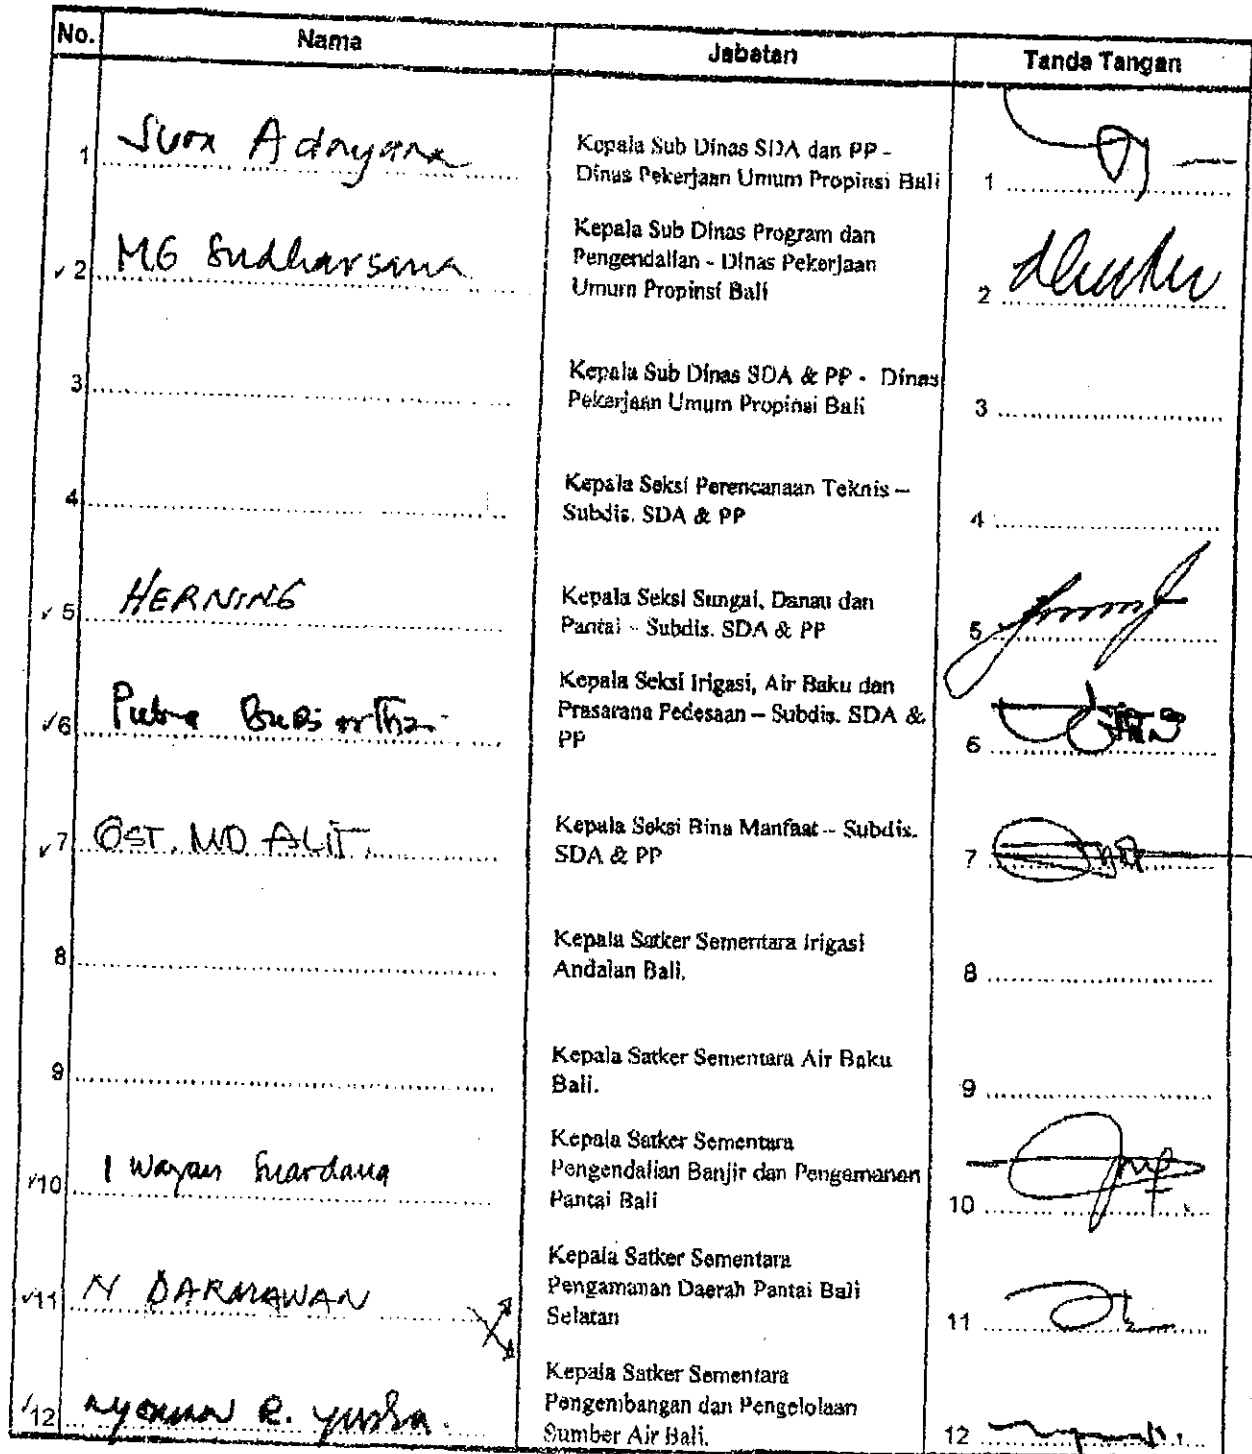 No. Nama Jabatan Tanda Tangan
1 Adnyana
Kepala Sub Dinas SDA dan PP -
Dinas Pekerjaan Umum Propinsi Bali
1
2 MG Sudharsana
Kepala Sub Dinas Program dan
Pengendalian - Dinas Pekerjaan
Umum Propinsi Bali
2
3
Kepala Sub Dinas SDA & PP - Dinas
Pekerjaan Umum Propinsi Bali
3
4
Kepala Seksi Perencanaan Teknis –
Subdis. SDA & PP
4
5 HERNING
Kepala Seksi Sungai, Danau dan
Pantai – Subdis. SDA & PP
5
6 Putra
Kepala Seksi Irigasi, Air Baku dan
Prasarana Pedesaan – Subdis. SDA &
PP
6
7 GST. MD ALIT.
Kepala Seksi Bina Manfaat – Subdis.
SDA & PP
7
8
Kepala Satker Sementara Irigasi
Andalan Bali.
8
9
Kepala Satker Sementara Air Baku
Bali.
9
10 I Wayan Suardana
Kepala Satker Sementara
Pengendalian Banjir dan Pengamanan
Pantai Bali
10
11 N DARMAWAN
Kepala Satker Sementara
Pengamanan Daerah Pantai Bali
Selatan
11
12 Nyoman R. Yusha.
Kepala Satker Sementara
Pengembangan dan Pengelolaan
Sumber Air Bali.
12